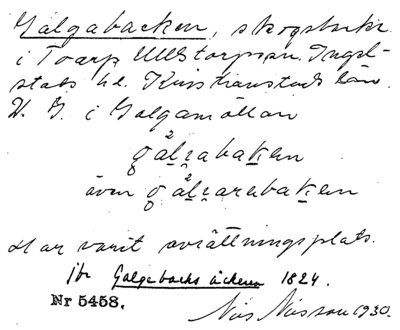 Galgabacken, skogsbacke
i Toarp Ullstorps sn. Ingel-
stads hd. Kristianstads län.
V. G. i Galgamöllan
gálʒabaken
även gálʒarabaken
Har varit avrättningsplats.
Jfr Galgebacks åckern 1824.
Nr 5458.
Nils Nilsson 1930.